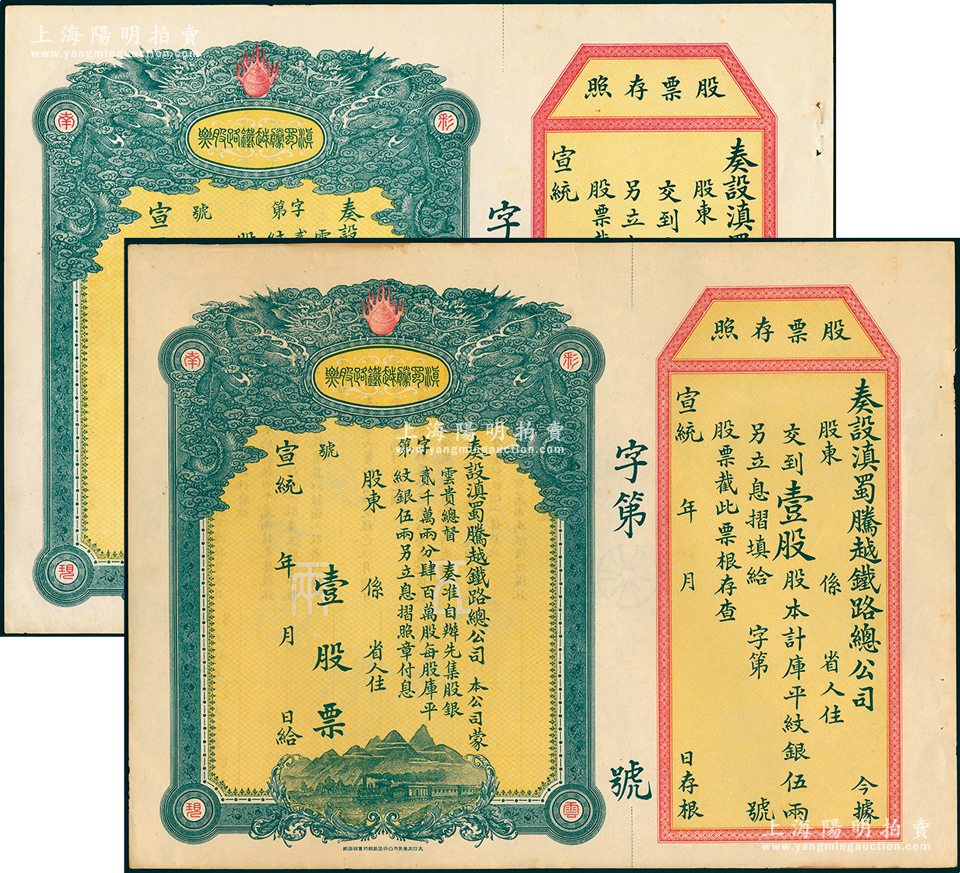 上海陽明拍賣
www.yangmingauction.com
滇蜀騰越鐵路股票
彩
南
碧
奏設
字第
號
宣
字
股票存照
奏設滇蜀
股東
交到
另立
股票截
宣統
滇蜀騰越鐵路股票
彩
南
雲
碧
奏設滇蜀騰越鐵路總公司 本公司蒙
雲貴總督 奏准自辦先集股銀
貳千萬兩分肆百萬股每股庫平
紋銀伍兩另立息摺照章付息
字第 號
股東 係 省人住
壹股票
宣統 年 月 日給
字第 號
股票存照
奏設滇蜀騰越鐵路總公司 今據
股東 係 省人住
交到壹股股本計庫平紋銀伍兩
另立息摺填給 字第 號
股票截此票根存查
宣統 年 月 日存根
上海陽明拍賣
www.yangmingauction.com
上海陽明拍賣
www.yangmingauction.com